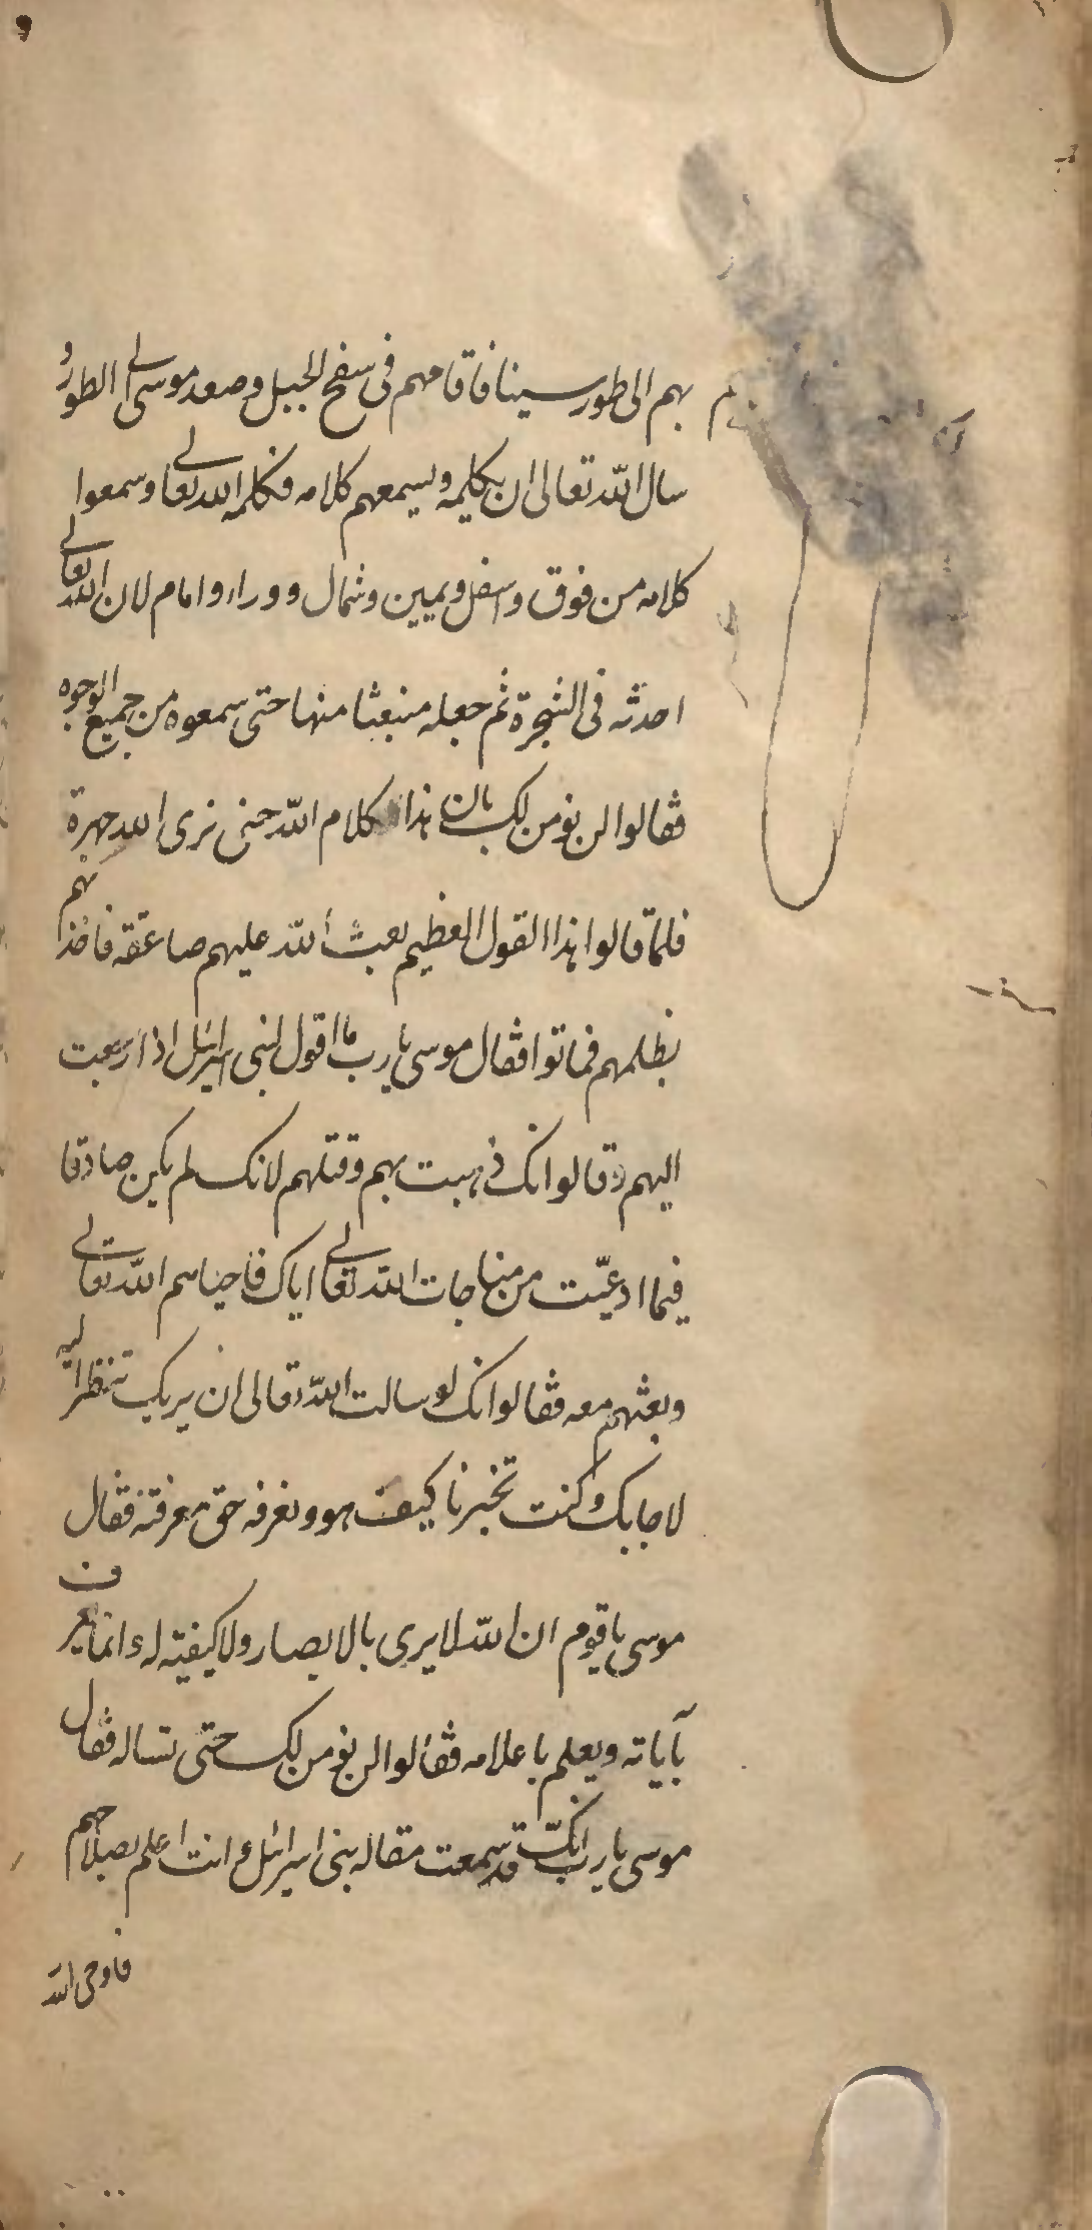 بهم الى طور سينا فاقامهم فى سفح الجبل وصعد موسى الى الطور و
سال اللّه تعالى ان يكلمه ويسمعهم كلامه فكلمه الله تعالى وسمعوا
كلامه من فوق واسفل ويمين وشمال ووراء وامام لان الله تعالى
احدثه فى الشجرة ثم جعله منبعثا منها حتى سمعوه من جميع الوجوه
فقالوا لن نومن لك بان هذا كلام اللّه حتى نرى الله جهرة
فلمّا قالوا هذا القول العظيم بعث اللّه عليهم صاعقة فاخذتهم
بظلمهم فماتوا فقال موسى يا رب ما اقول لبنى اسرائل اذا رجعت
اليهم وقالوا انك ذهبت بهم وقتلهم لانك لم يكن صادقا
فيما ادعيّت من مناجات اللّه تعالى اياك فاحياهم اللّه تعالى
وبعثهم معه فقالوا انك لو سالت اللّه تعالى ان يريك تنظر اليه
لاجابك وكنت تخبرنا كيف هو ونعرفه حق معرفته فقال
موسى يا قوم ان اللّه لا يرى بالابصار ولا كيفية له وانما يعرف
بآياته ويعلم باعلامه فقالوا لن نومن لك حتى تساله فقال
موسى يا رب انكّ قد سمعت مقاله بنى اسرائل وانت اعلم بصلاحهم
فاوحى اللّه